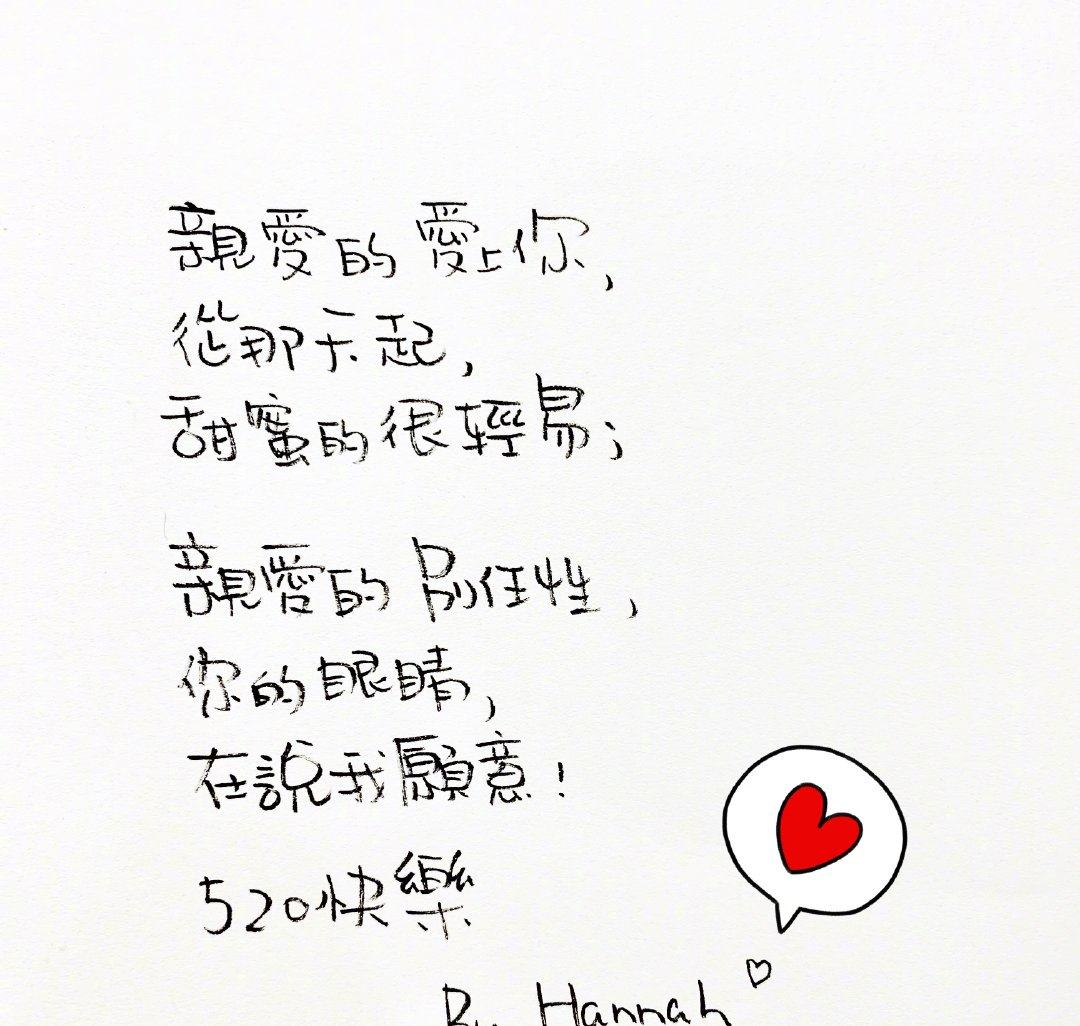 親愛的 愛上你，
從那天起，
甜蜜的很輕易；
親愛的 別任性，
你的眼睛，
在說我願意！
520快樂
By Hannah ♡